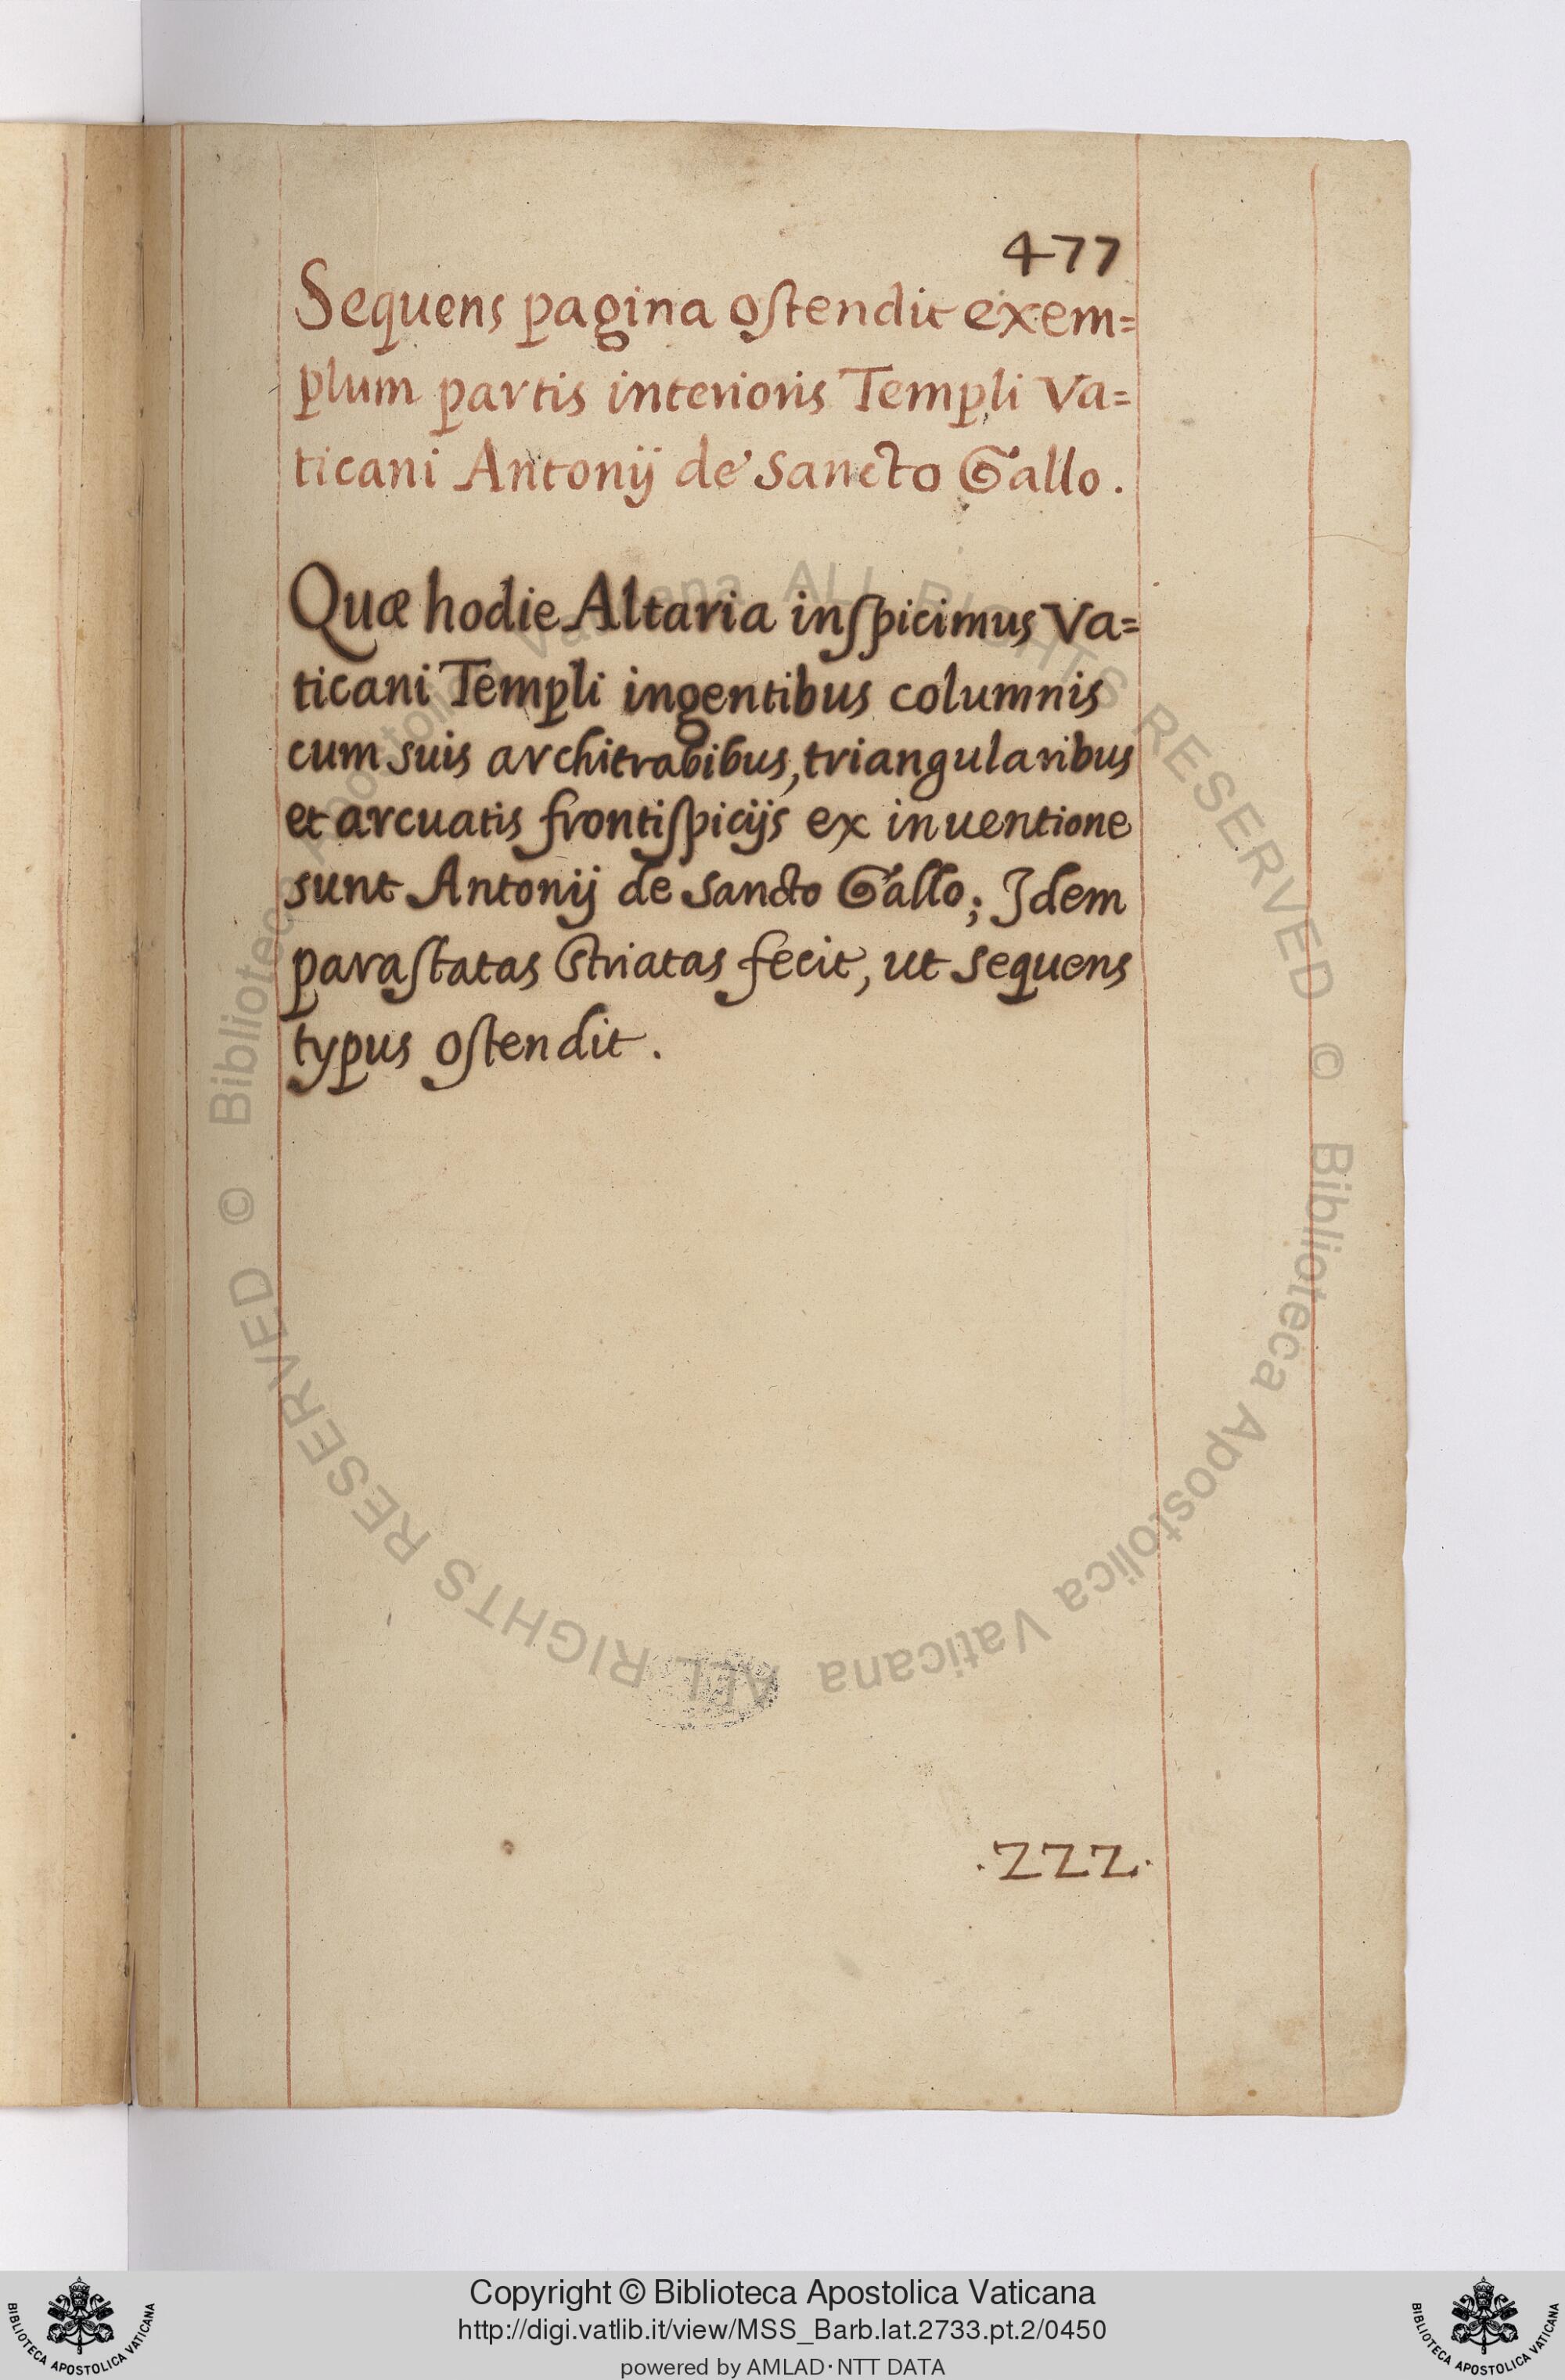 477
Sequens pagina ostendit exem=
plum partis interioris Templi Va=
ticani Antonij de Sancto Gallo.
Quæ hodie Altaria inspicimus Va=
ticani Templi ingentibus columnis
cum suis architrabibus, triangularibus
et arcuatis frontispicijs ex inuentione
sunt Antonij de Sancto Gallo; Idem
parastatas striatas fecit, ut sequens
typus ostendit.
.ZZZ.
© Biblioteca Apostolica Vaticana ALL RIGHTS RESERVED
© Biblioteca Apostolica Vaticana ALL RIGHTS RESERVED
Copyright © Biblioteca Apostolica Vaticana
http://digi.vatlib.it/view/MSS_Barb.lat.2733.pt.2/0450
powered by AMLAD·NTT DATA
BIBLIOTECA APOSTOLICA VATICANA
BIBLIOTECA APOSTOLICA VATICANA